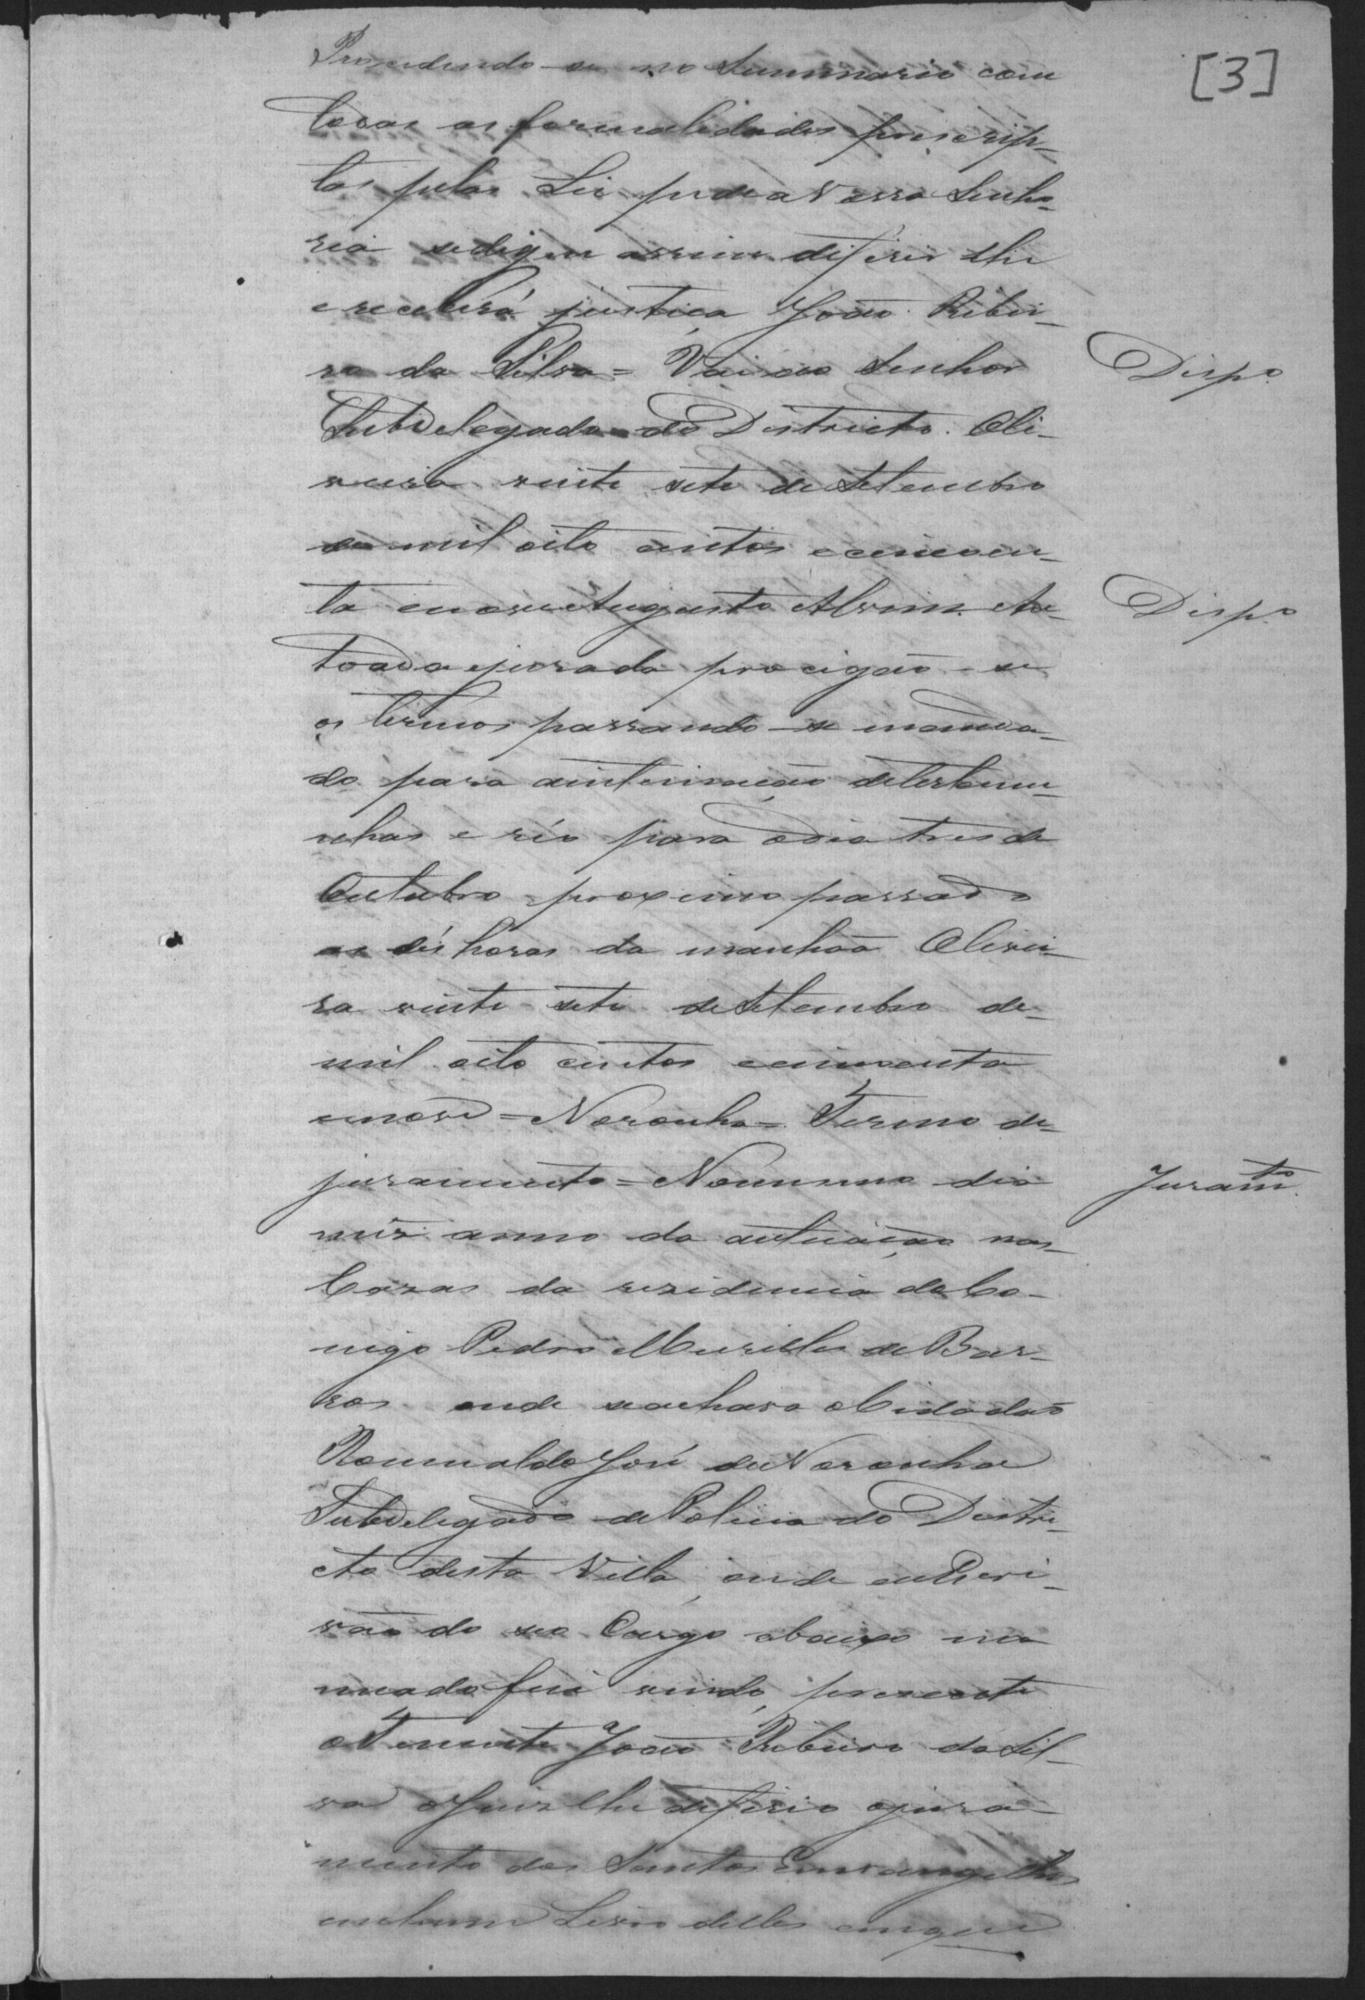 [3]
Procedendo-se no Summario com
todas as formalidades priscrip-
tas pelas Lei pede a Vossa Senho-
ria sedigne assim diferir lhe
e recebrá justiça João Ribei-
ro da Silva = Vai ao Senhor
Dispo
Subdelegado do Districto. Oli-
veira vinte sete de Setembro
de mil oito centos e cincoen-
ta enove Augusto Alvim. Au-
Dispo
toada ejurada procigão-se
os termos passando-se manda-
do para aintimação detestemu-
nhas e réo para odia tres de
Outubro proximo passado
as dés horas da manhãa Olivei-
ra vinte sete de Setembro de-
mil oito centos ecincoenta
enove = Noronha = Termo de
juramento = Nomesmo dia
Juramto.
mês anno da autuação nas
Cazas da rezidencia do Co-
nigo Pedro Meirelles de Bar-
ros onde seachava oCidadão
Romualdo José de Noronha
Subdelegado de Policia do Distri-
cto desta Villa, onde eu Escri-
vão do seo Cargo abaixo no
meado fui vindo, presente
oTenente João Ribeiro da Sil-
va oJuiz lhe deferio ojura
mento dos Santos Evangelhos
emhum Livro delles emque